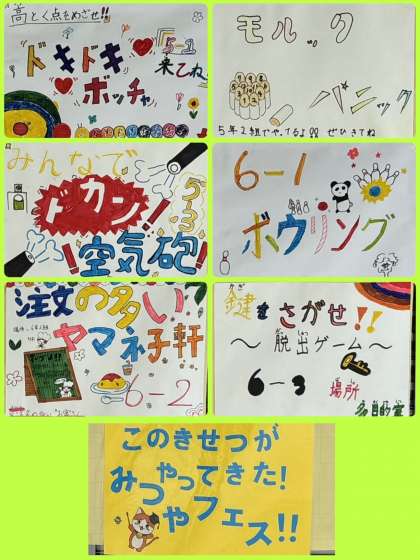 高とく点をめざせ!!
ドキドキ
5-1
来てね
ボッチャ
モルック
パニック
5年2組でやってるよ!! ぜひきてね
みんなで
ドカン!!
5-3
空気砲!
6-1
ボウリング
注文の多い
ヤマネ子軒
6-2
かぎ
鍵をさがせ!!
～脱出ゲーム～
6-3
場所
多目的室
このきせつが
やってきた!
みつやフェス!!